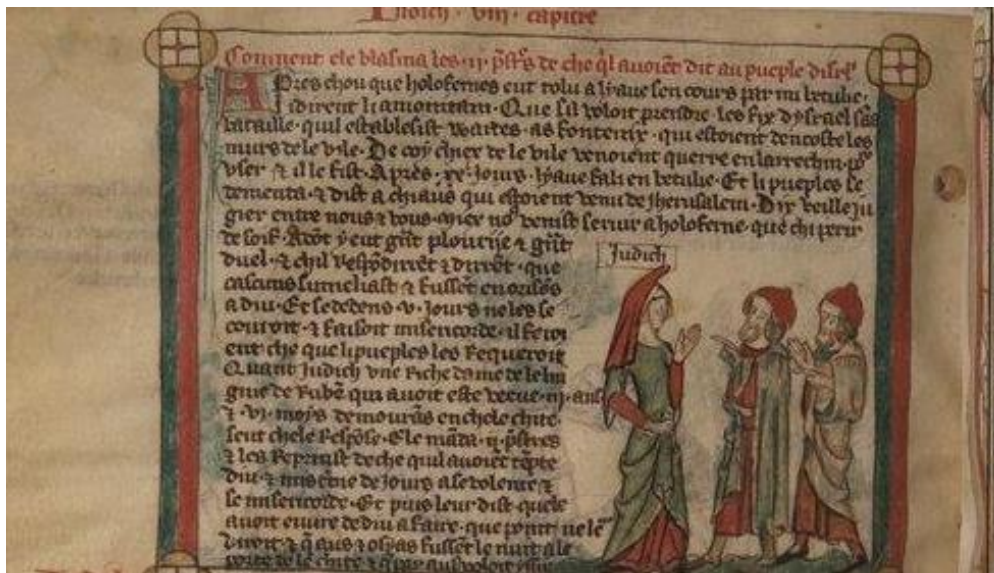 Judich · viij · capitre
Coment ele blasma les · ij · pstres de che ql avoiēt dit au pueple disrl
Apres chou que holofernes eut tolu a lyaue sen cours par mi betulie ·
disent li amonitain · Que sil voloit prendre · les fix dysrael sās
bataille · quil establesist waites · as fonteniex · qui estoient dencoste les
murs de le vile · De coy chiex de le vile venoient querre en larrechin ·
vser ⁊ il le fist · Apres · xxˢ · Jours · lyaue fali en betulie · Et li pueples se
dementa · ⁊ dist a chiaus qui estoient venu de jherusalem · Dix veille ju
gier entre nous ⁊ vous · miex no venist servir a holoferne · que chi perir
de soif · Adōt y eut gūt plourije ⁊ gūt
duel · ⁊ chil respōdirēt ⁊ dirēt · que
cascuns sumeliast ⁊ fussēt en orisōs
a diu · Et se dedens · v · Jours ne les se
couroit · ⁊ faisoit misericorde · il feroi
ent che que li pueples les requeroit
Quant Judich vne riche dame de le lin
gnie de Rubē qui avoit este veve · iij · ans
⁊ · vi · moys demourās en chele chite ·
seut chele respōse · Ele māda · ij · pstres
⁊ les reprinst de che quil avoiēt tēpte
diu · ⁊ mis tme de Jours a se volente ⁊
se misericorde · Et puis leur dist · quele
avoit euvre de diu a faire · que
⁊ q aus ⁊ osyas fussēt le nuit a le
porte de le chite ⁊ q
Judich